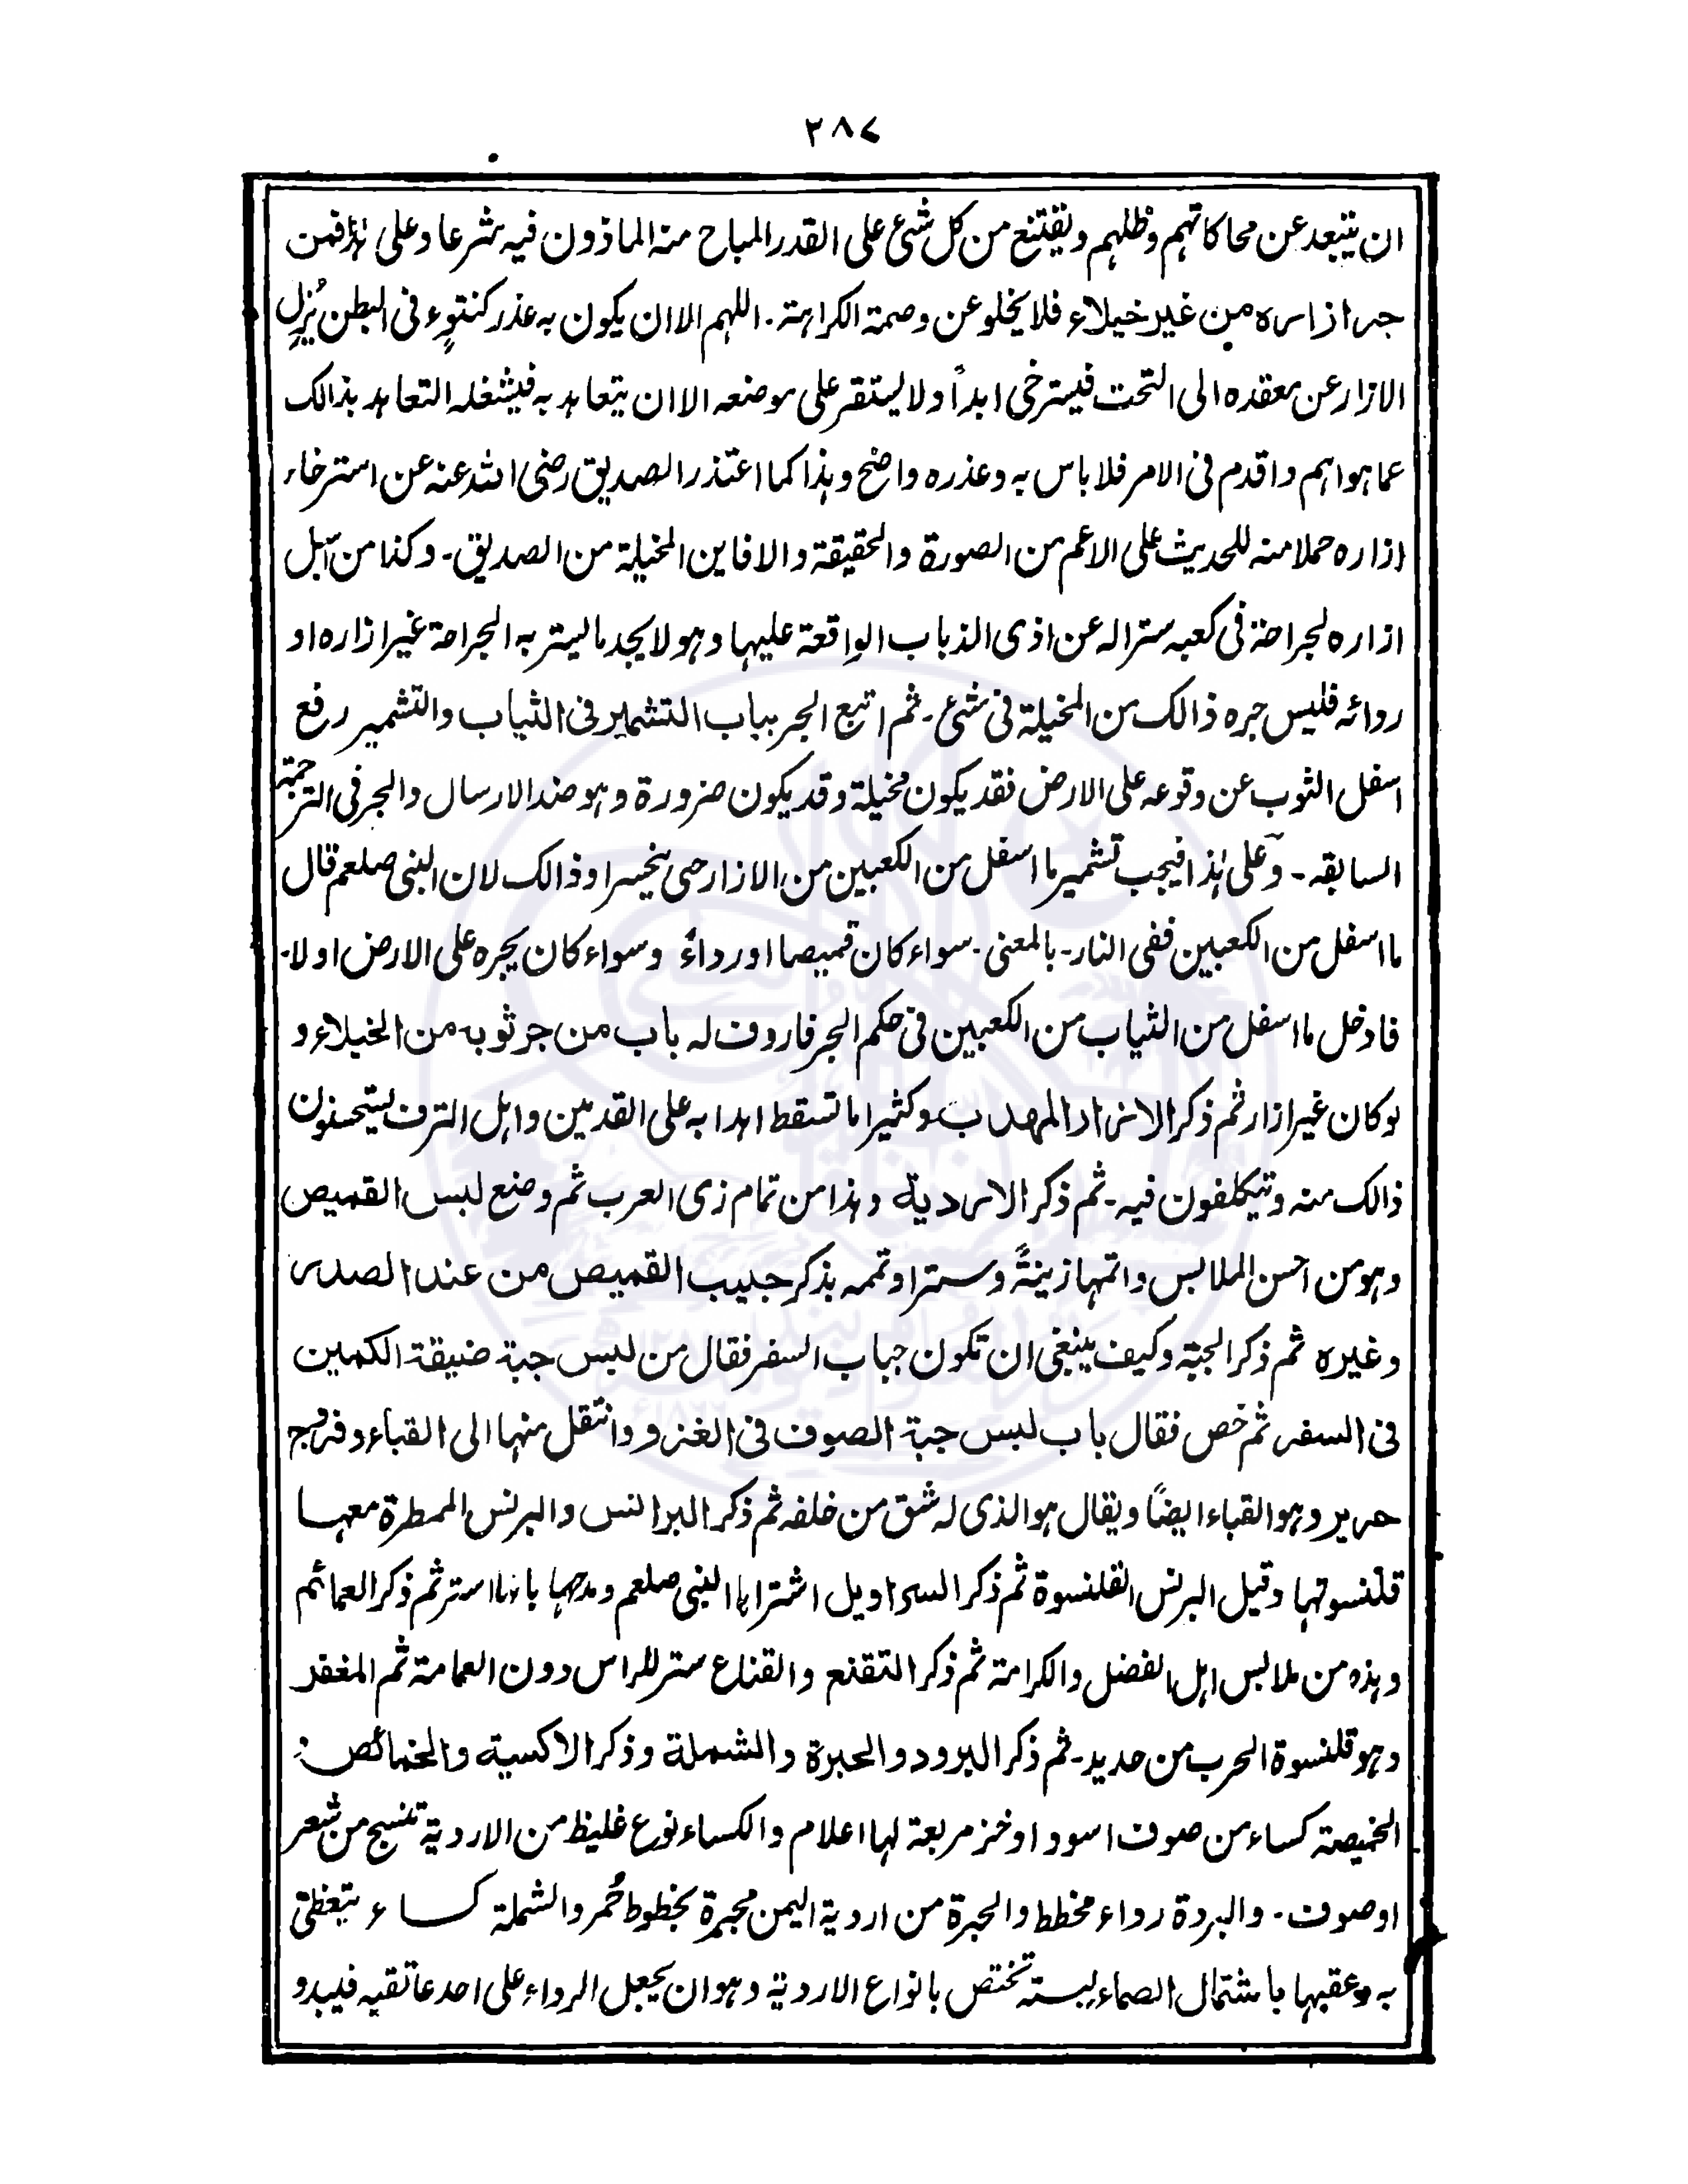 ٢٨٧
ان يتبعد عن محاكاتهم وظلهم ويقتنع من كل شئ على القدر المباح منه الماذون فيه شرعا وعلى هذا فمن
جر ازاره من غير خيلاء فلا يخلو عن وصمة الكراهة ـ اللهم الا ان يكون به عذر كنتوء فى البطن يُزِل
الازار عن معقده الى التحت فيسترخى ابداً ولا يستقر على موضعه الا ان يتعاهد به فيشغله التعاهد بذالك
عما هو اهم واقدم فى الامر فلا باس به وعذره واضح وهذا كما اعتذر الصديق رضى الله عنه عن استرخاء
ازاره حملا منه للحديث على الاعم من الصورة والحقيقة والا فاين المخيلة من الصديق ـ وكذا من اسبل
ازاره لجراحة فى كعبه سترا له عن اذى الذباب الواقعة عليها وهو لا يجد ما يستر به الجراحة غير ازاره او
روائه فليس جره ذالك من المخيلة فى شئ ـ ثم اتبع الجر بباب التشمير فى الثياب والتشمير رفع
اسفل الثوب عن وقوعه على الارض فقد يكون مخيلة وقد يكون ضرورة وهو ضد الارسال والجر فى الترجمة
السابقه ـ وعلى هذا فيجب تشمير ما اسفل من الكعبين من الازار حتى ينحسر وذالك لان النبى صلعم قال
ما اسفل من الكعبين ففى النار ـ بالمعنى ـ سواء كان قميصا او رداءً وسواء كان يجره على الارض او لا ـ
فادخل ما اسفل من الثياب من الكعبين فى حكم الجر فاردف له باب من جر ثوبه من الخيلاء و
لو كان غير ازار ثم ذكر الازار المهدب وكثيرا ما تسقط اهدابه على القدمين واهل الترف يستحسنون
ذالك منه ويتكلفون فيه ـ ثم ذكر الاردية وهذا من تمام زى العرب ثم وضع لبس القميص
وهو من احسن الملابس واتمها زينةً وسترا وتممه بذكر جيب القميص من عند الصدر
وغيره ثم ذكر الجبة وكيف ينبغى ان تكون جباب السفر فقال من لبس جبة ضيقة الكمين
فى السفر ثم خص فقال باب لبس جبة الصوف فى الغزو وانتقل منها الى القباء وفروج
حرير وهو القباء ايضًا ويقال هو الذى له شق من خلفه ثم ذكر البرانس والبرنس الممطرة معها
قلنسوتها وقيل البرنس القلنسوة ثم ذكر السراويل اشتراها النبى صلعم ومدحها بانها استر ثم ذكر العمائم
وهذه من ملابس اهل الفضل والكرامة ثم ذكر التقنع والقناع ستر للراس دون العمامة ثم المغفر
وهو قلنسوة الحرب من حديد ـ ثم ذكر البرود والحبرة والشملة وذكر الاكسية والخمائص :
الخميصة كساء من صوف اسود او خز مربعة لها اعلام والكساء نوع غليظ من الاردية تنسج من شعر
او صوف ـ والبردة رداء مخطط والحبرة من اردية اليمن محبرة بخطوط حُمر والشملة كساء يتغطى
به وعقبها باشتمال الصماء لبسته تختص بانواع الاردية وهو ان يجعل الرداء على احد عاتقيه فيبدو